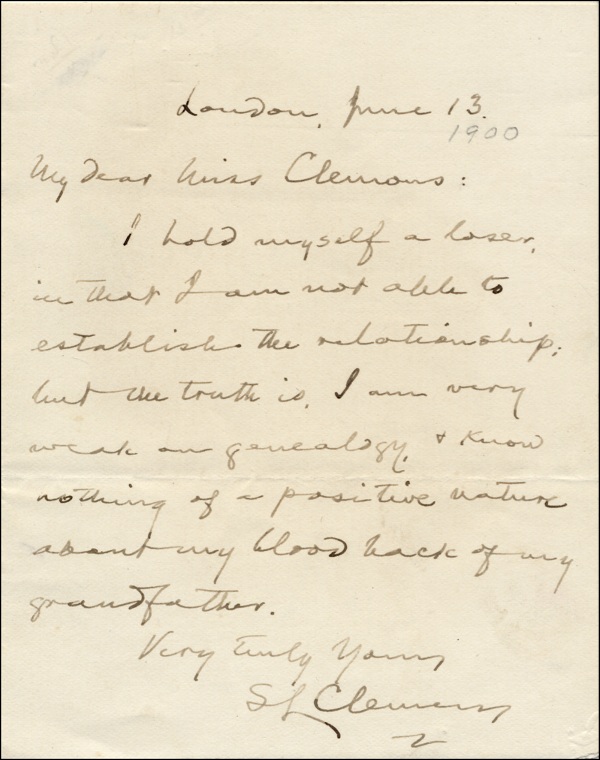 London, June 13.
1900
My dear Miss Clemons:
I hold myself a loser,
in that I am not able to
establish the relationship;
but the truth is, I am very
weak on genealogy, & know
nothing of a positive nature
about my blood back of my
grandfather.
Very truly Yours
SL Clemens